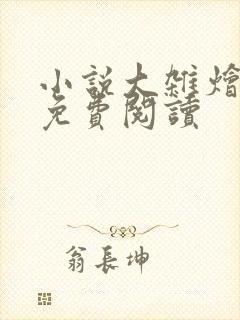 小說大雜燴
免費閱讀
翁長坤